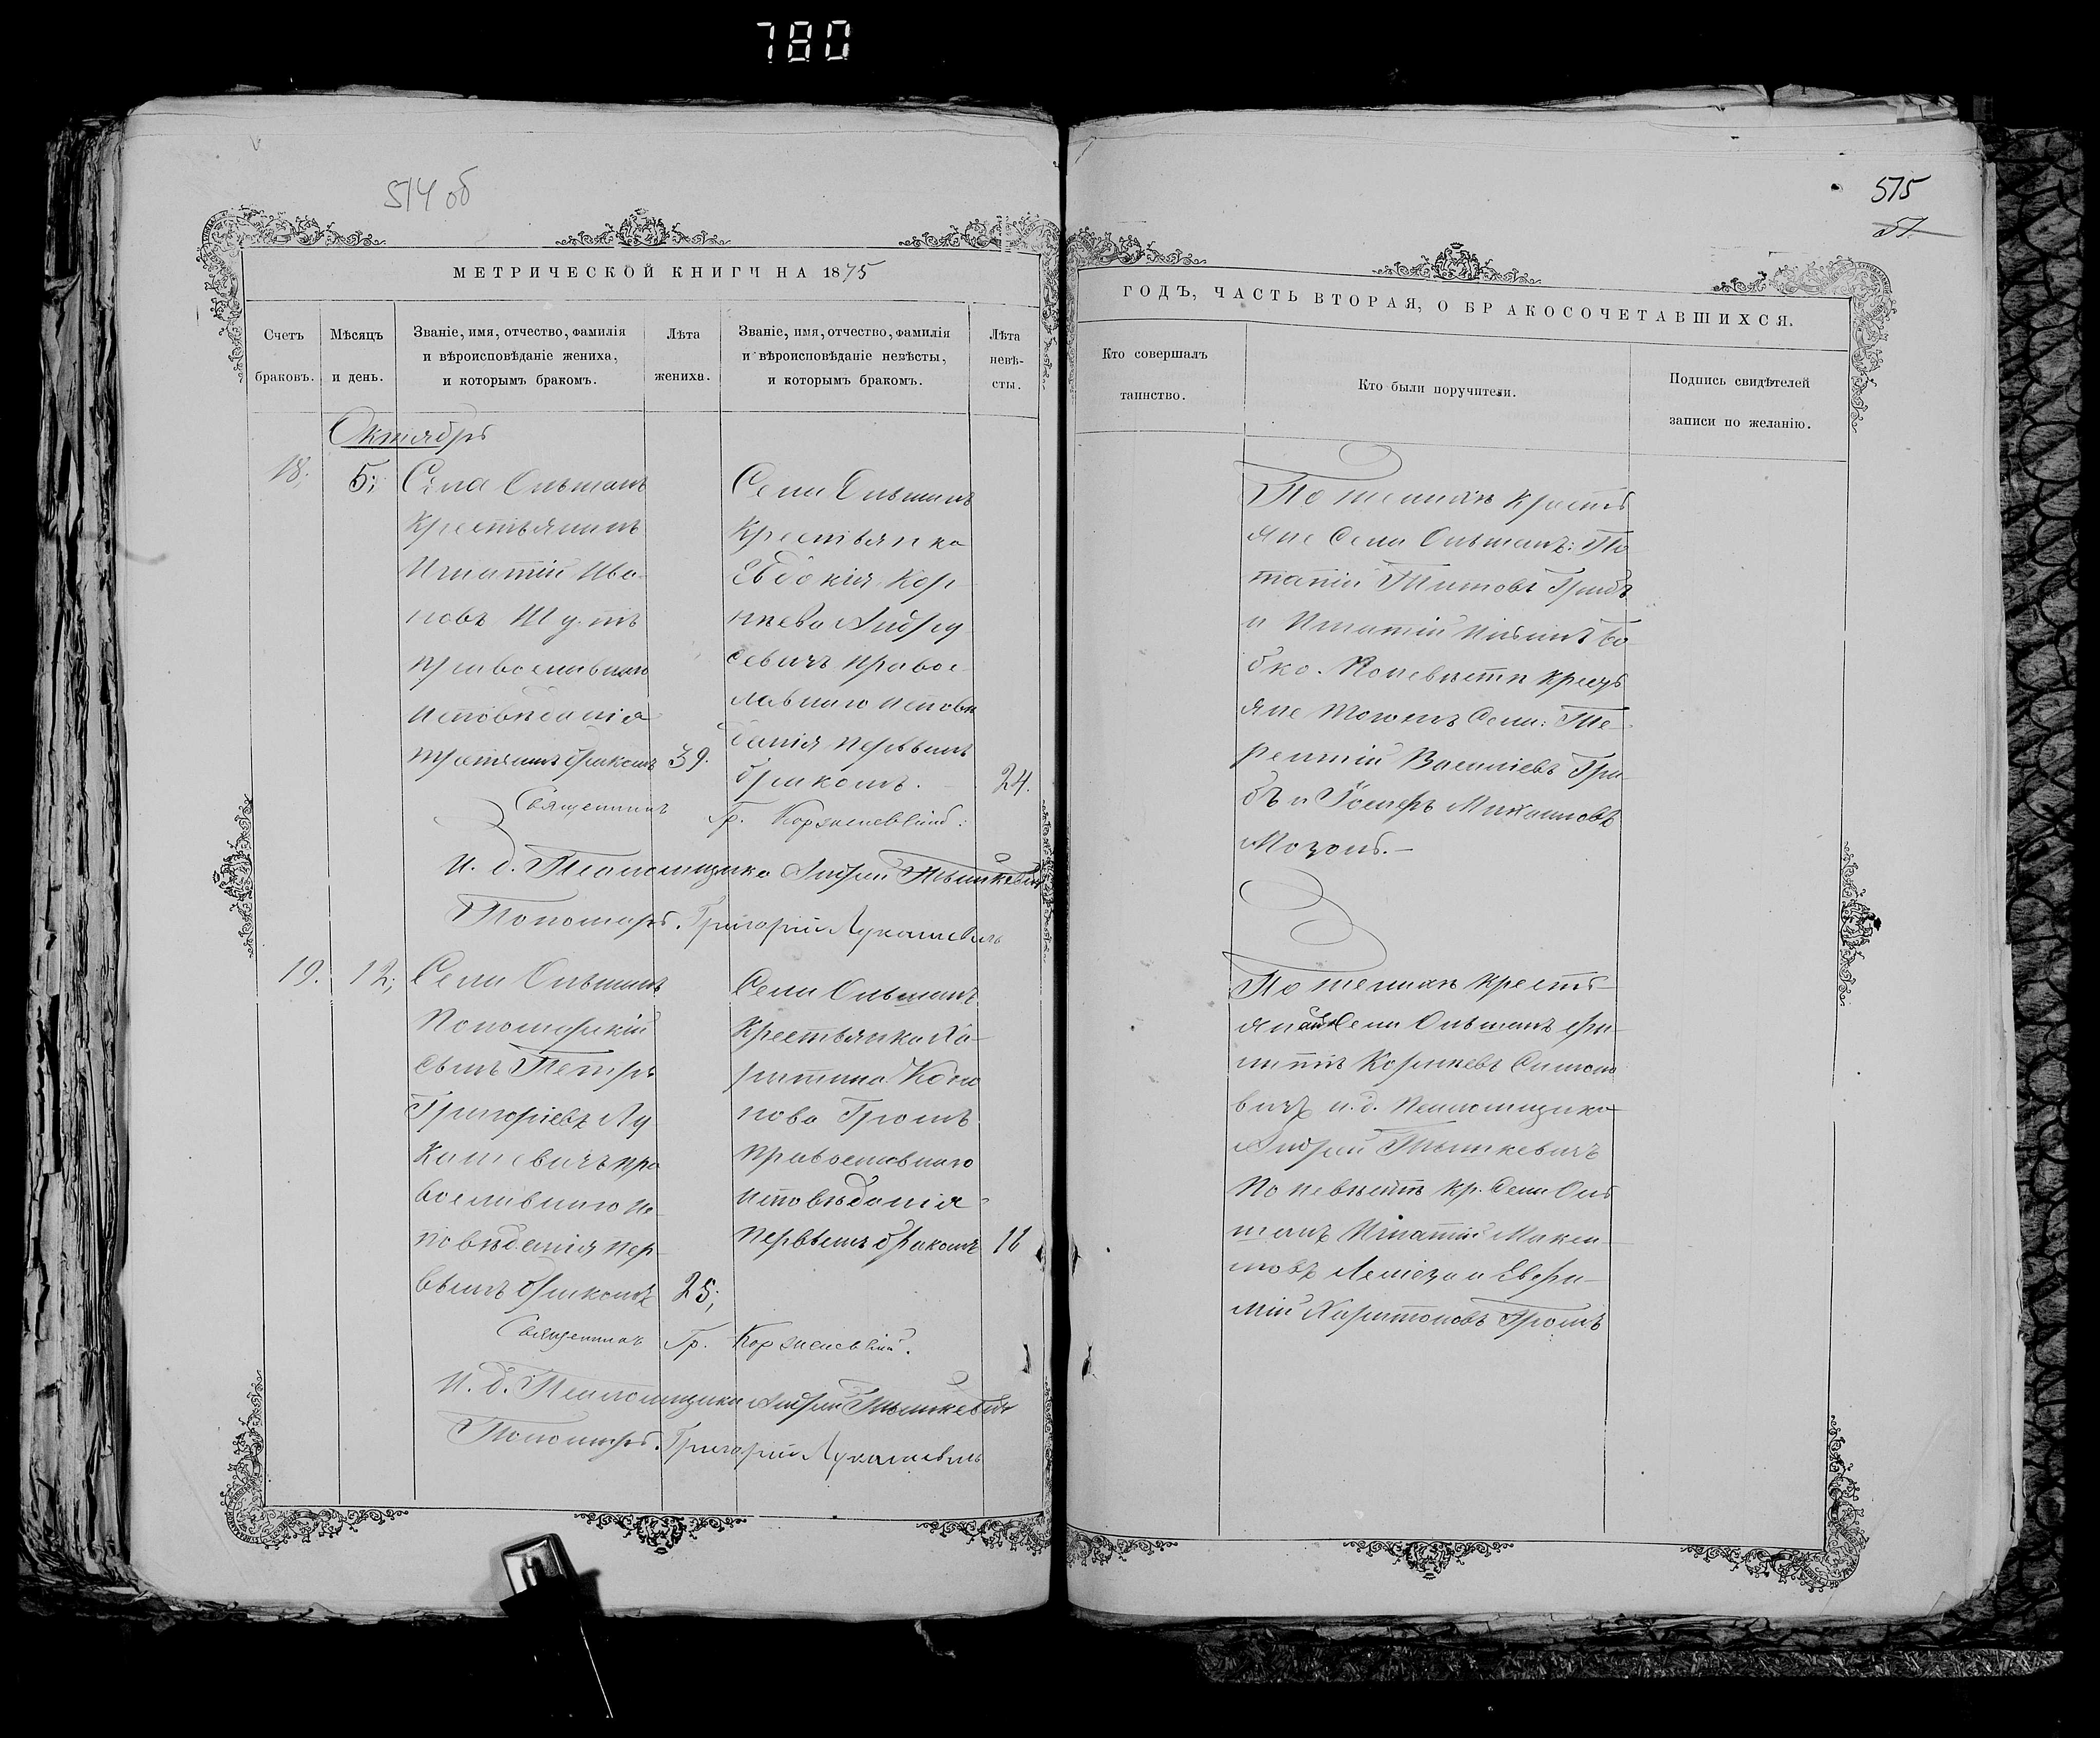 780
514 об
МЕТРИЧЕСКОЙ КНИГИ НА 1875
Счетъ браковъ.
Мѣсяцъ и день.
Званіе, имя, отчество, фамилія
и вѣроисповѣданіе жениха,
и которымъ бракомъ.
Лѣта жениха.
Званіе, имя, отчество, фамилія
и вѣроисповѣданіе невѣсты,
и которымъ бракомъ.
Лѣта
невѣ-
сты.
Октябрь
18.
5;
Села Ольманъ
Крестьянинъ
Игнатій Ива-
новъ
православнаго
исповѣданія
третьимъ бракомъ
39.
Села Ольманъ
Крестьянка
Евдокія Кор-
нѣева Андру-
севичъ правос-
лавнаго исповѣ
данія первымъ
бракомъ.
24.
Священникъ Гр.
И. д. Псаломщика Андрей Тышкевичъ
Пономарь Григорій Лукашевичъ
19.
12;
Села Ольманъ
Пономарскій
сынъ Петръ
Григоріевъ Лу
кашевичъ пра
вославнаго ис-
повѣданія пер-
вымъ бракомъ
25;
Села Ольманъ
Крестьянка Ха-
ритина
нова Громъ
православнаго
исповѣданія
первымъ бракомъ
Священникъ Гр.
И. д. Псаломщика Андрей Тышкевичъ
Пономарь. Григорій Лукашевичъ
575
51
ГОДЪ, ЧАСТЬ ВТОРАЯ, О БРАКОСОЧЕТАВШИХСЯ.
Кто совершалъ
таинство.
Кто были поручители.
Подпись свидѣтелей
записи по желанію.
По женихѣ Кресть
яне Села Ольманъ: По
тапій Титовъ Грибъ
и Игнатій
бко. По невѣстѣ Кресть
яне тогожъ Села: Те-
рентій Василіевъ Гри-
бъ и Михаиловъ
Мозоль.—
По женихѣ Кресть-
Села Ольманъ
Корнѣевъ Симоно
вичъ и. д. Псаломщика
Андрей Тышкевичъ
По невѣстѣ кр. Села Оль
манъ Игнатій Макси-
мовъ и Евфи-
мій Харитоновъ Громъ